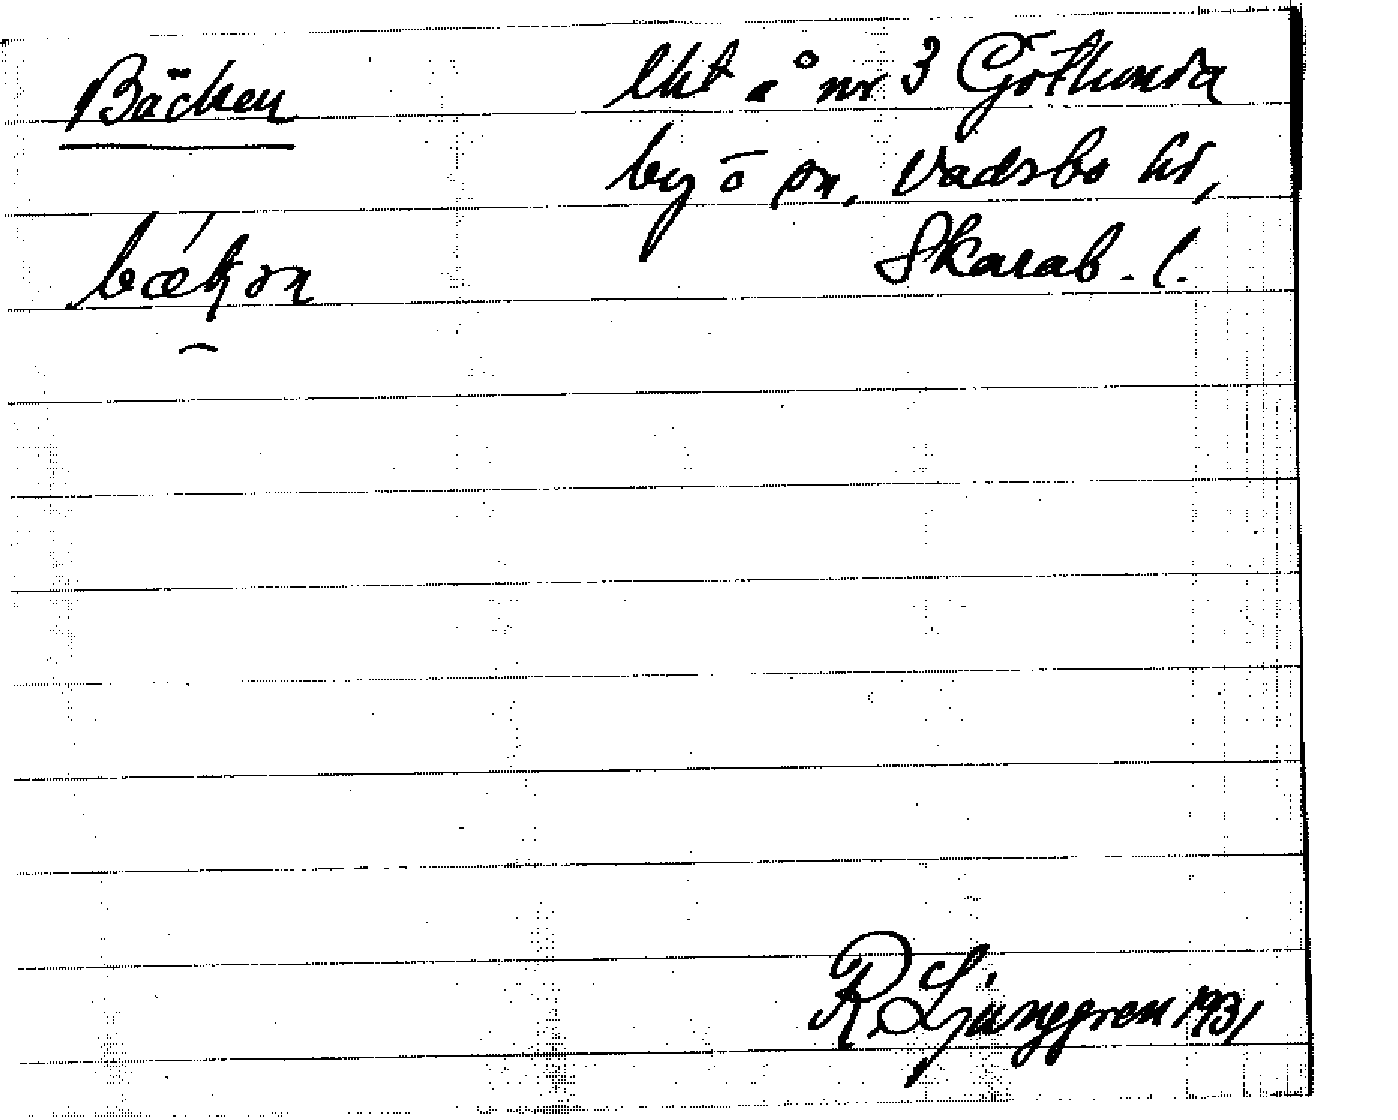 Bäcken
bækən
lht å nr 3 Göthunda
by ō sn, Vadsbo hd,
Skarab. l.
R. Ljunggren 1931